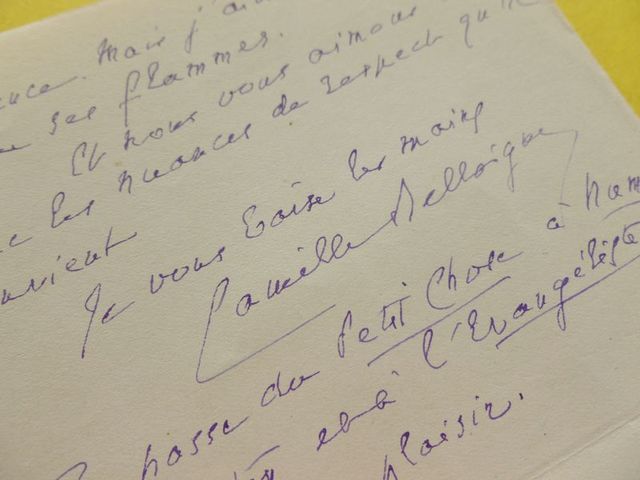 Mais j'ai
ses flammes.
Et nous vous aimons
les nuances de respect qu'il
convient
Je vous baise les mains
Camille
passe du Petit Chose à
et à l'Evangéliste
plaisir.